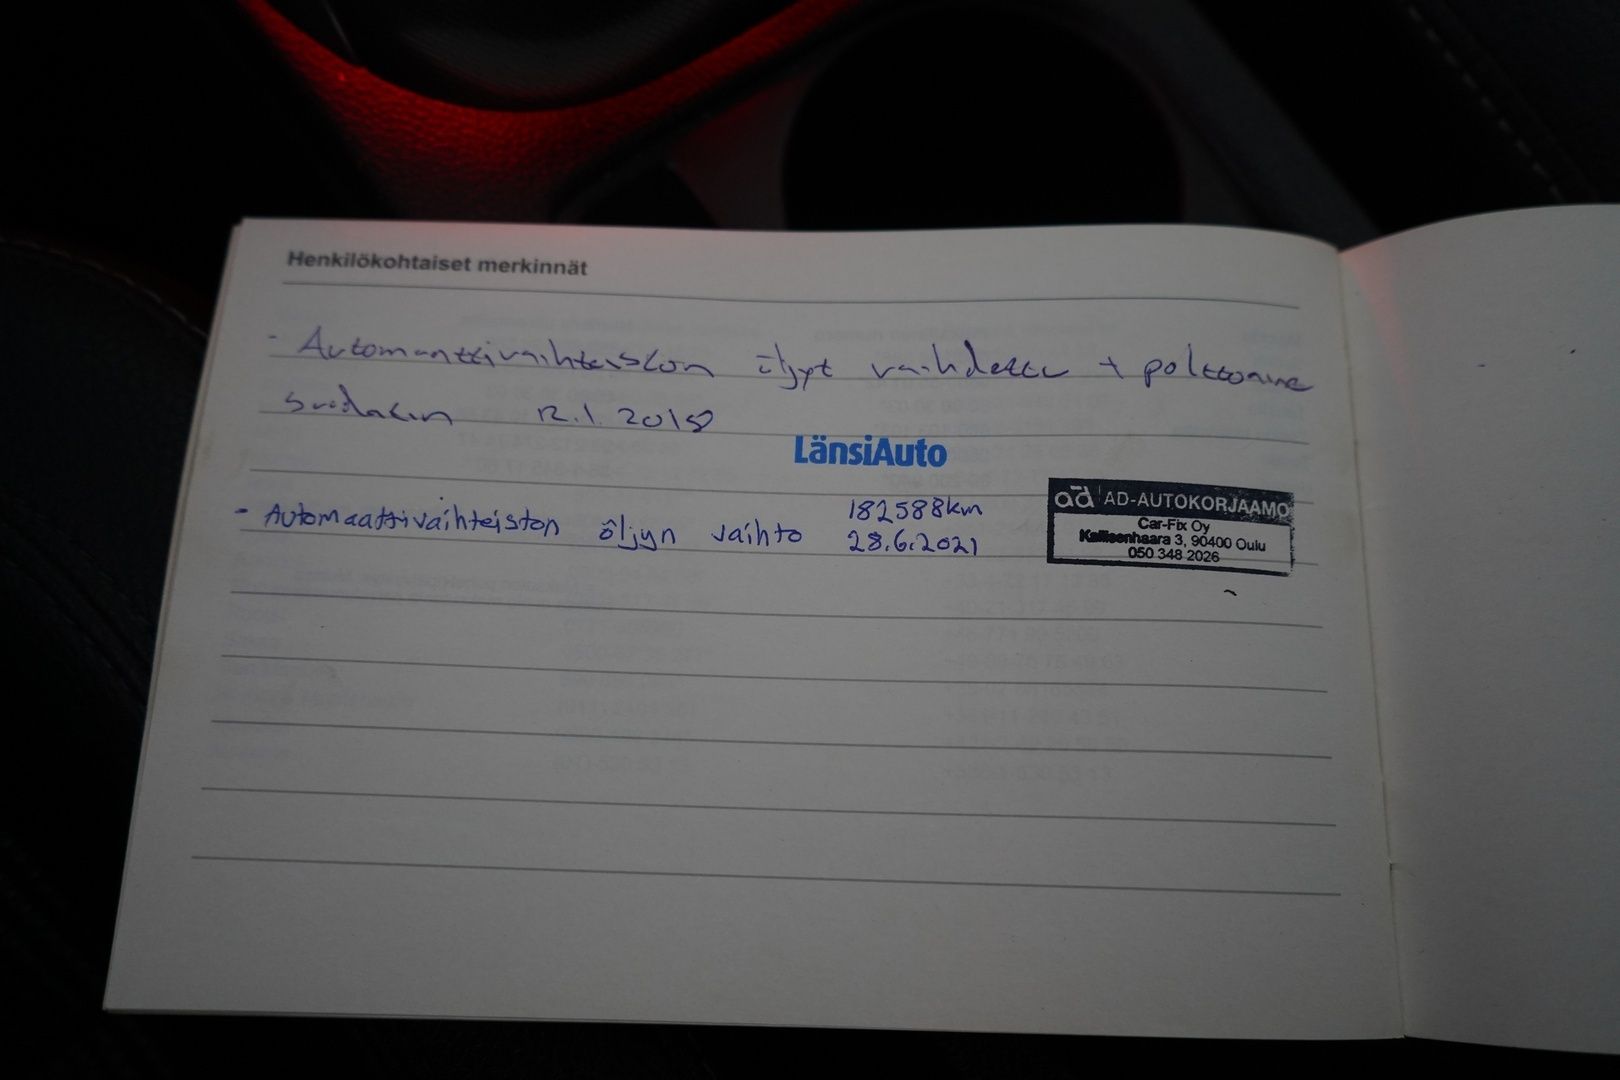 Henkilökohtaiset merkinnät
- Automaattivaihteiston öljyt vaihdettu + polttoaine
suodatin 12.1.2018
LänsiAuto
- Automaattivaihteiston öljyn vaihto 182588km
28.6.2021
ad AD-AUTOKORJAAMO
Car-Fix Oy
Kallisenhaara 3, 90400 Oulu
050 348 2026